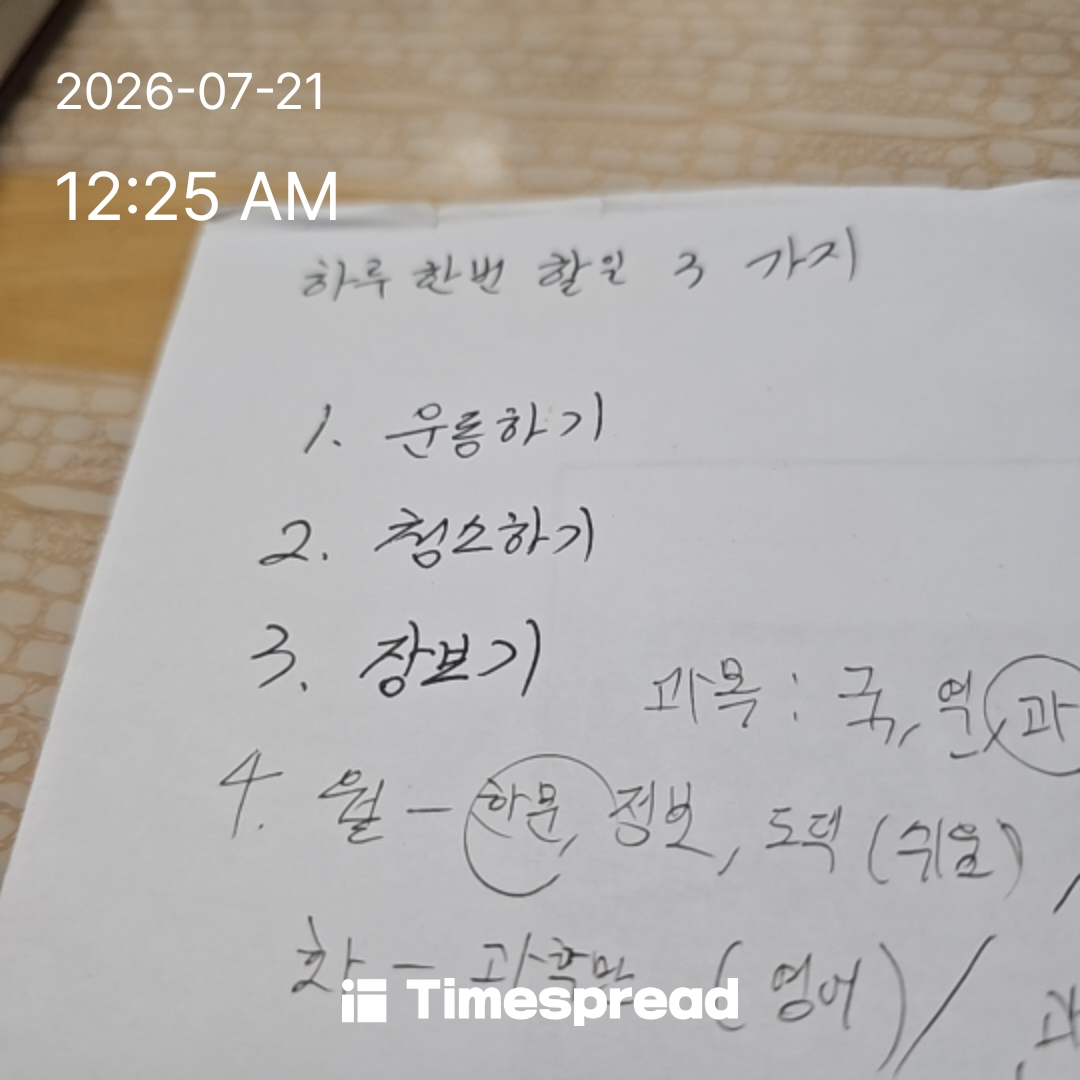 2026-07-21
12:25 AM
하루 한번 할일 3 가지
1. 운동하기
2. 청소하기
3. 장보기
과목 : 국, 역, 과
4. 월 - 한문, 정보, 도덕 (쉬움)
화 - 과학만 (영어) /
Timespread